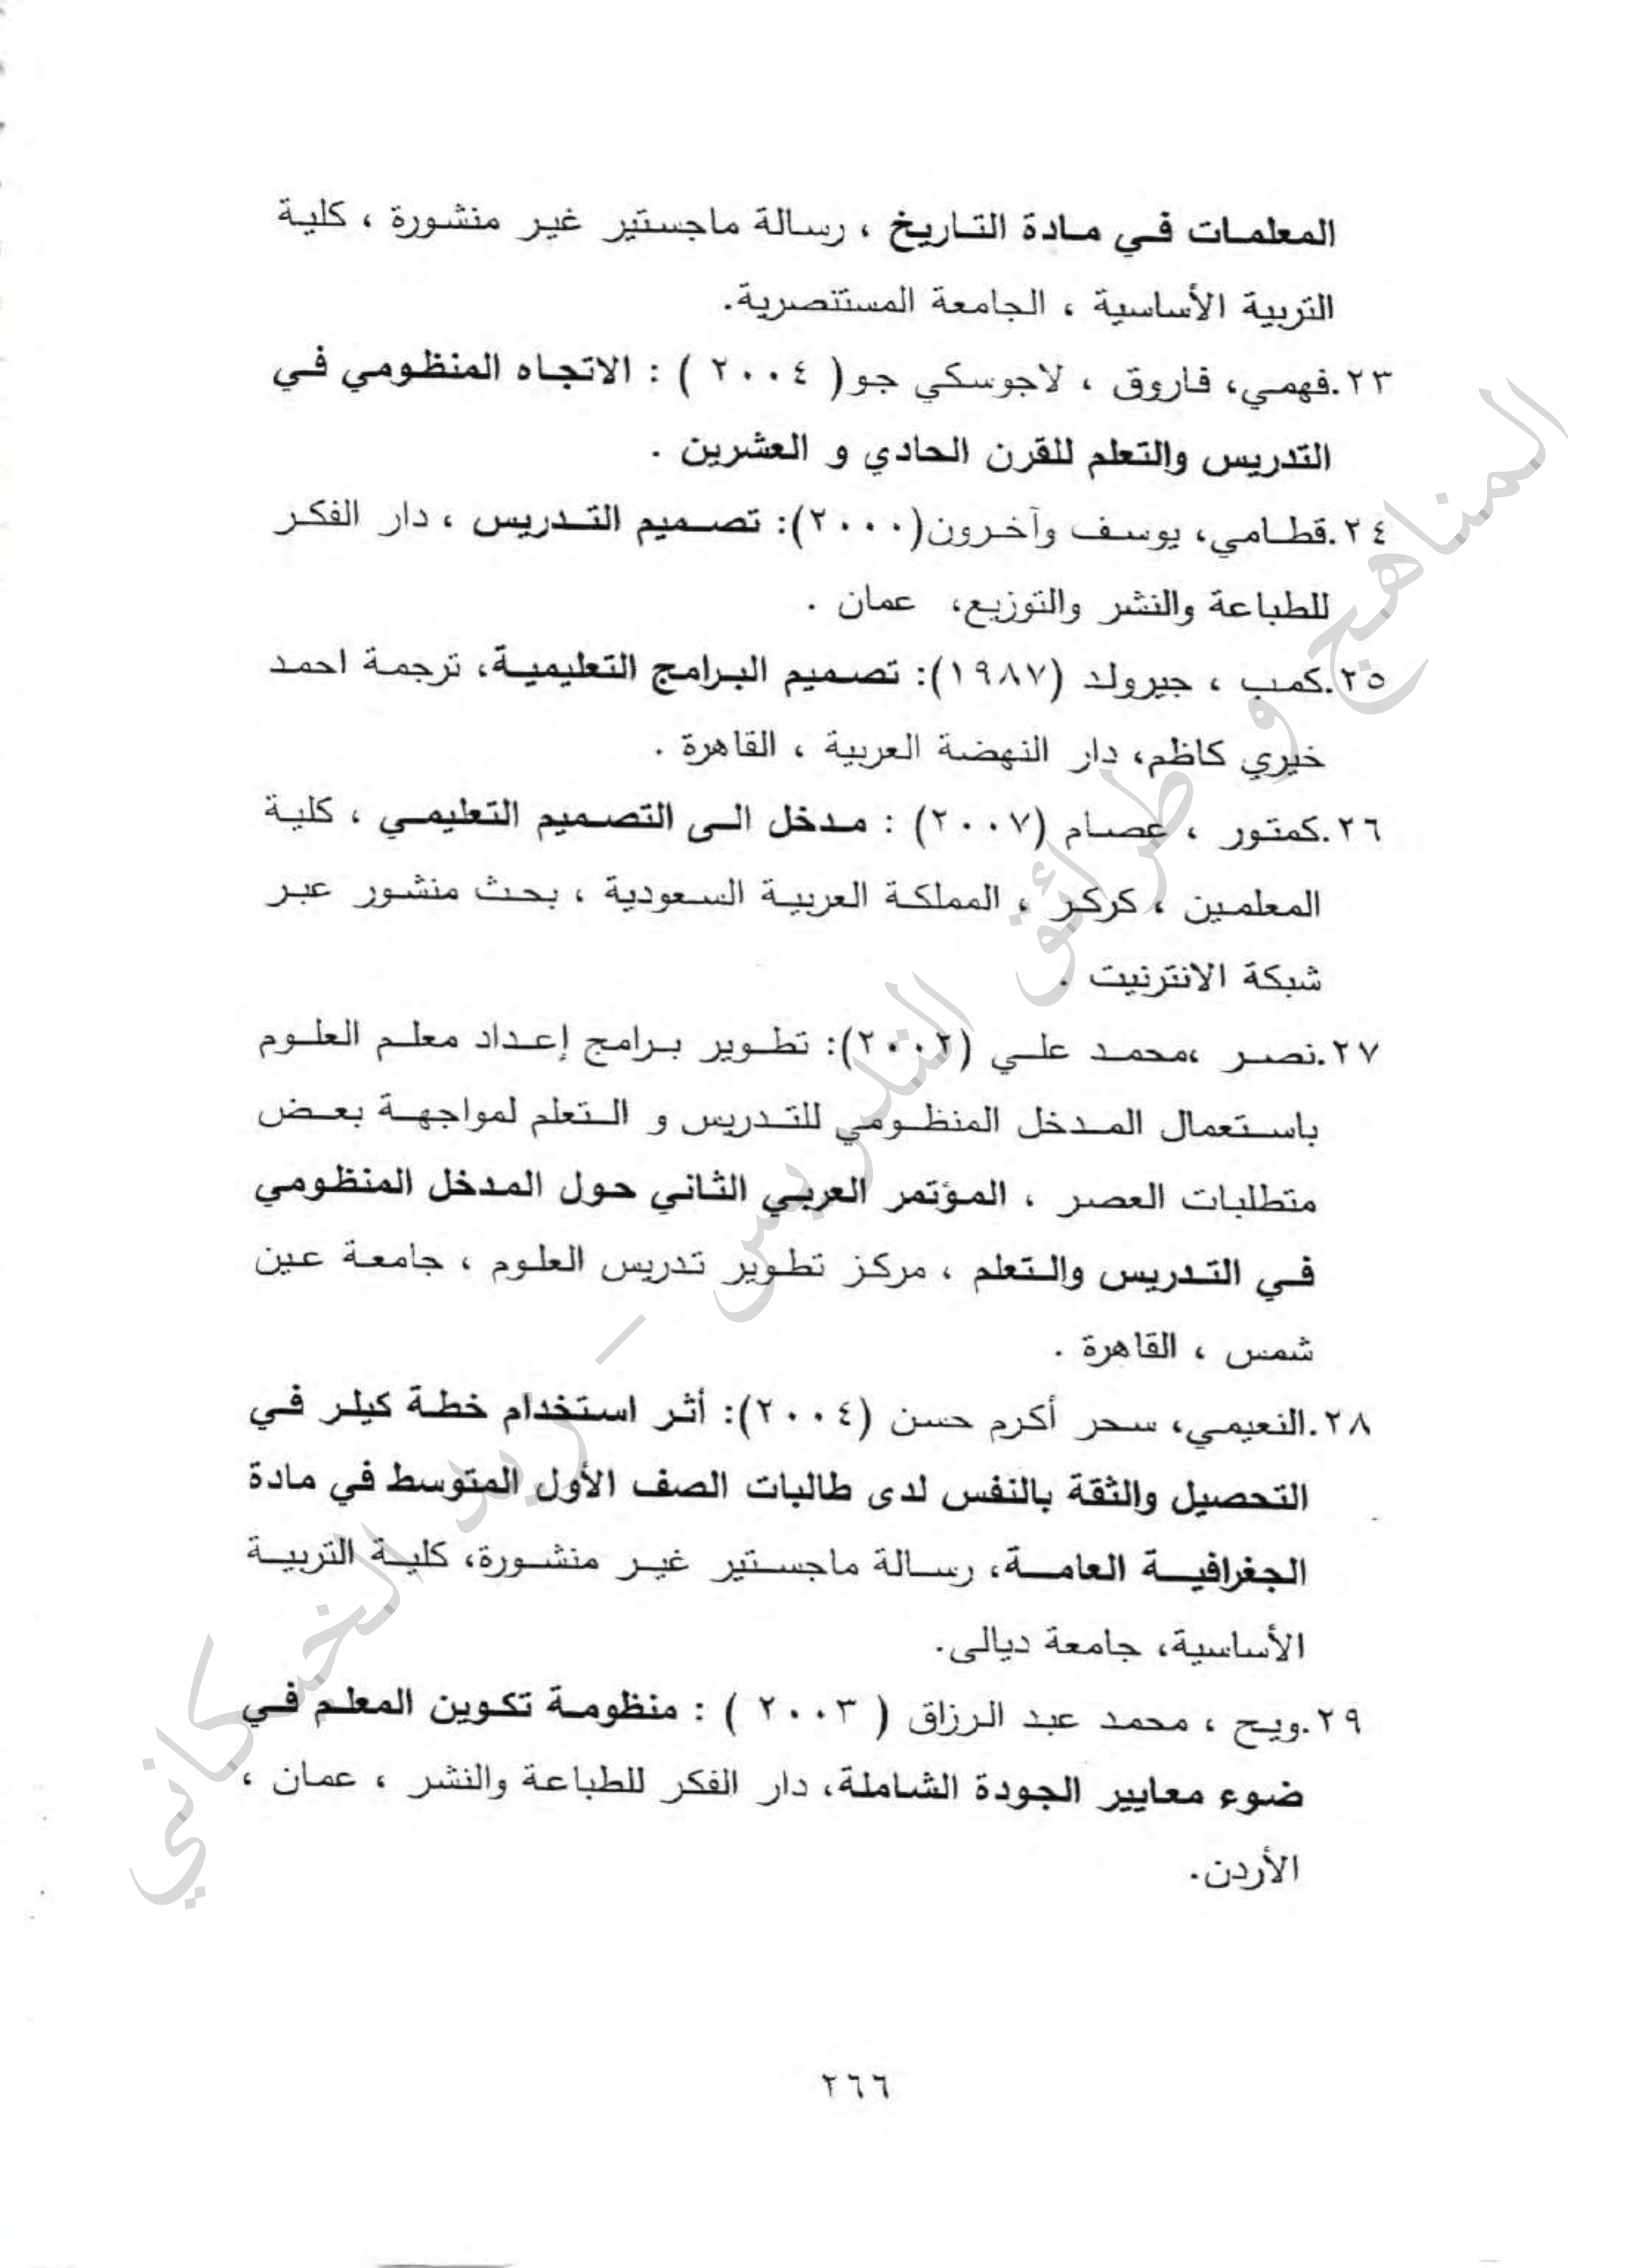 المعلمات في مادة التاريخ ، رسالة ماجستير غير منشورة ، كلية
التربية الأساسية ، الجامعة المستنصرية.
٢٣.فهمي، فاروق ، لاجوسكي جو( ٢٠٠٤ ) : الاتجاه المنظومي في
التدريس والتعلم للقرن الحادي و العشرين .
٢٤.قطامي، يوسف وآخرون(٢٠٠٠): تصميم التدريس ، دار الفكر
للطباعة والنشر والتوزيع، عمان .
٢٥.كمب ، جيرولد (١٩٨٧): تصميم البرامج التعليمية، ترجمة احمد
خيري كاظم، دار النهضة العربية ، القاهرة .
٢٦.كمتور ، عصام (٢٠٠٧) : مدخل الى التصميم التعليمي ، كلية
المعلمين ، كركر ، المملكة العربية السعودية ، بحث منشور عبر
شبكة الانترنيت .
٢٧.نصر ،محمد علي (٢٠٠٢): تطوير برامج إعداد معلم العلوم
باستعمال المدخل المنظومي للتدريس و التعلم لمواجهة بعض
متطلبات العصر ، المؤتمر العربي الثاني حول المدخل المنظومي
في التدريس والتعلم ، مركز تطوير تدريس العلوم ، جامعة عين
شمس ، القاهرة .
٢٨.النعيمي، سحر أكرم حسن (٢٠٠٤): أثر استخدام خطة كيلر في
التحصيل والثقة بالنفس لدى طالبات الصف الأول المتوسط في مادة
الجغرافية العامة، رسالة ماجستير غير منشورة، كلية التربية
الأساسية، جامعة ديالى.
٢٩.ويح ، محمد عبد الرزاق ( ٢٠٠٣ ) : منظومة تكوين المعلم في
ضوء معايير الجودة الشاملة، دار الفكر للطباعة والنشر ، عمان ،
الأردن.
٢٦٦
المناهج و طرائق التدريس –